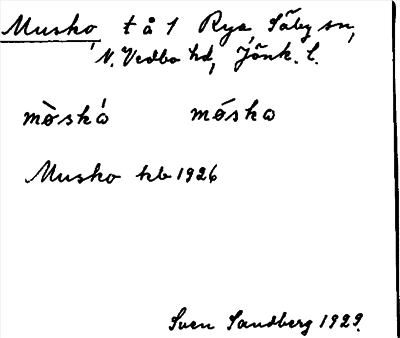 Musko, t å 1 Rys, Säby sn,
N. Vedbo hd, Jönk. l.
mòskó móska
Musko hb 1926
Sven Sandberg 1929.